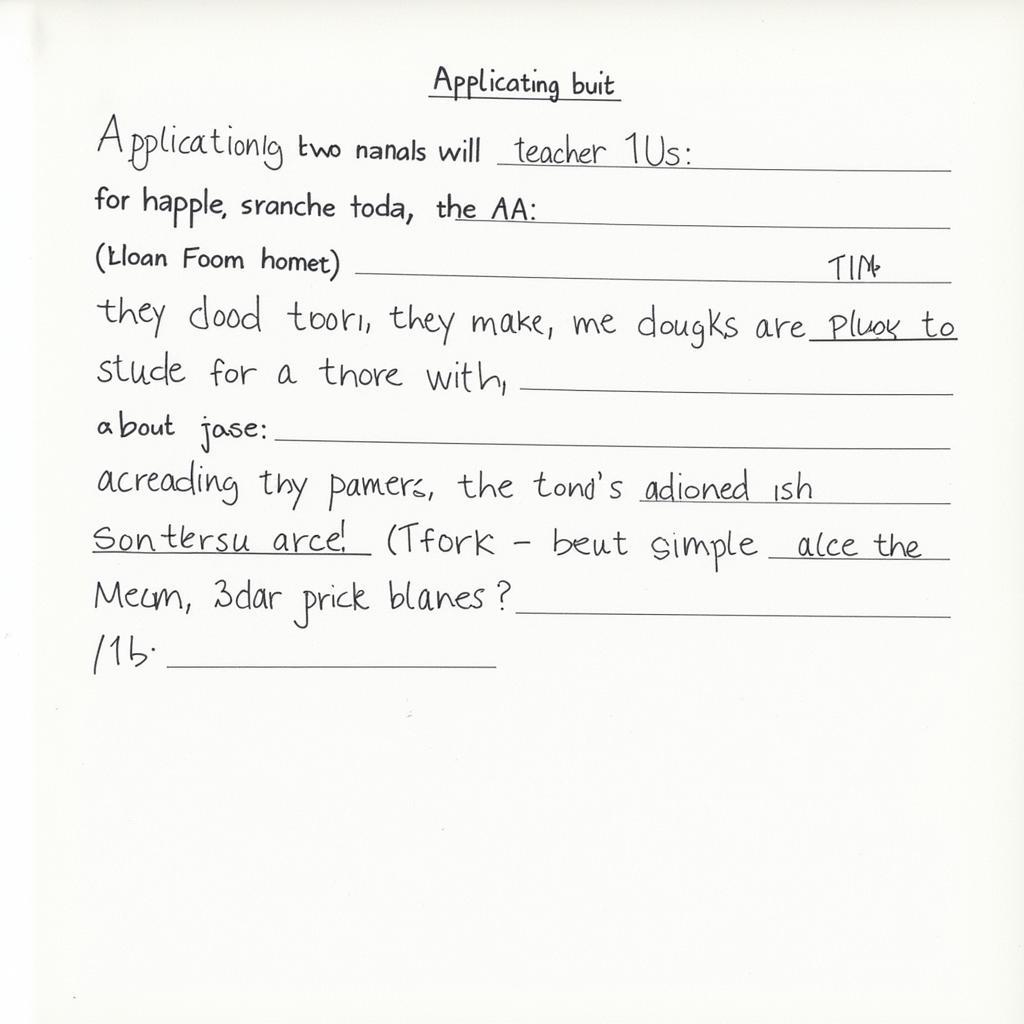 Applicating buit
Applicationlg two nanals will teacher 1Us:
for happle, sranche toda, the AA:
(Lloan Foom homet)
they dood toori, they make, me dougks are pluok to
stude for a thore with,
about jase:
acreading thy pamers, the tond's adioned ish
Sontersu arce! (Tfork - beut simple alce the
Mecum, 3dar prick blanes?
/1b.